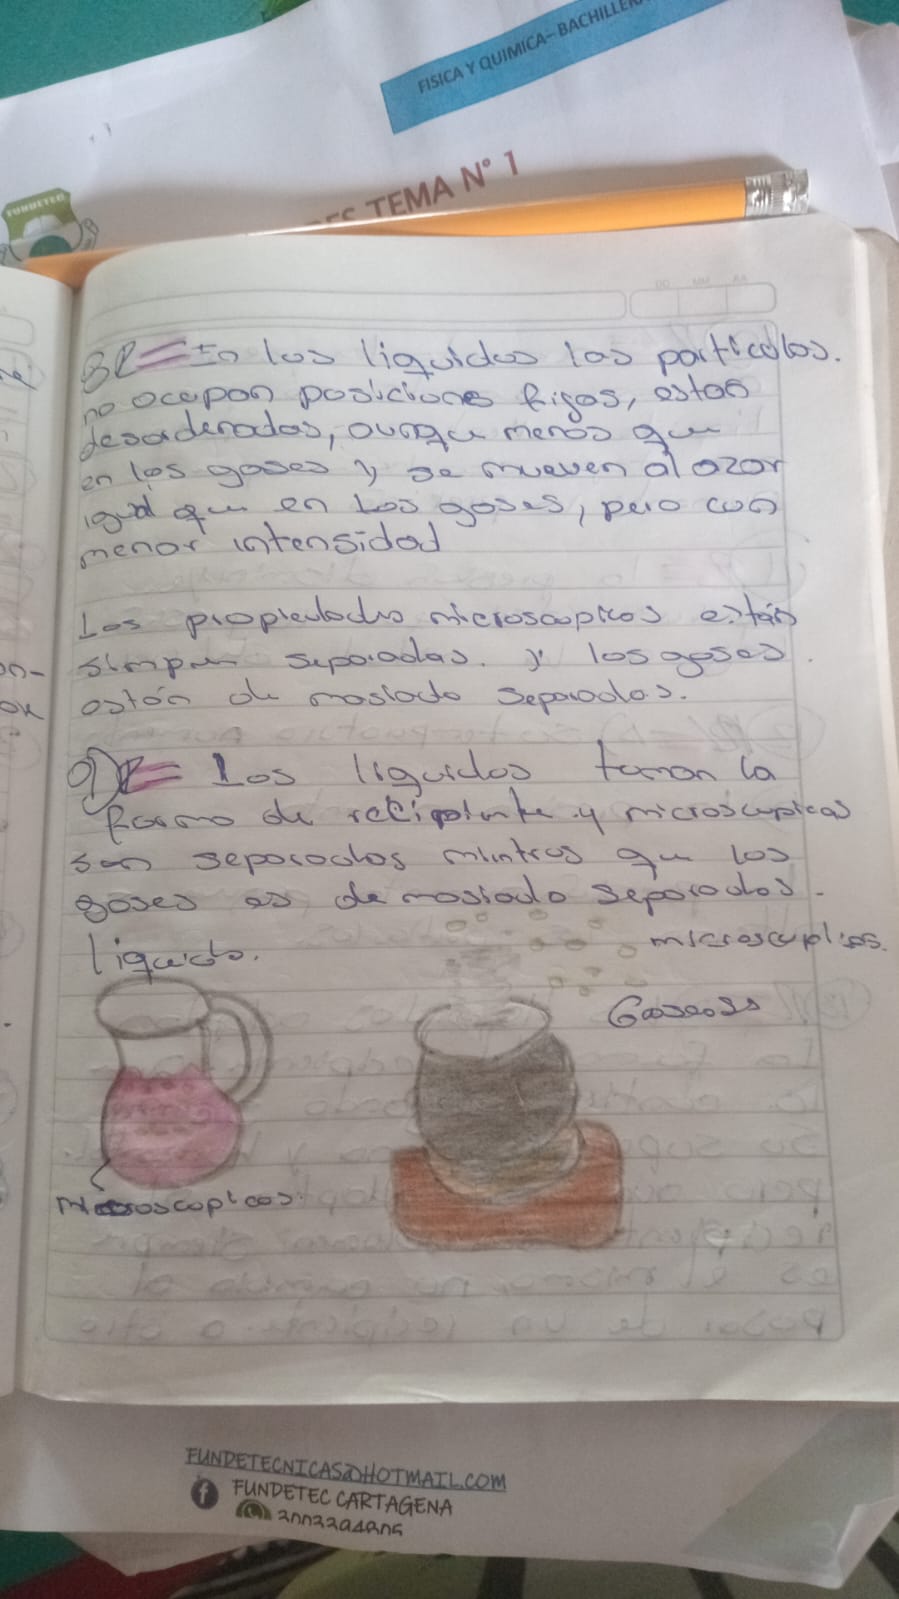 FISICA Y QUIMICA- BACHILLERA
TEMA N° 1
FUNDETEC
DD MM AA
8R= En los liquidos las particolas.
no ocupan posiciones figas, estan
desordenados, aunque menos que
en los gases y se mueven al azar
igual que en los gases, pero con
menor intensidad
Las propiedades microscopicos están
simpre separadas. y los gases.
están de masiado separados.
9)R= Los liquidos toman la
forma de recipiente y microscupicas
son separados mintras que los
gases es de masiado separados.
liquido.
microscupicos.
Gaseoso
microscopicos.
FUNDETECNICAS@HOTMAIL.COM
FUNDETEC CARTAGENA